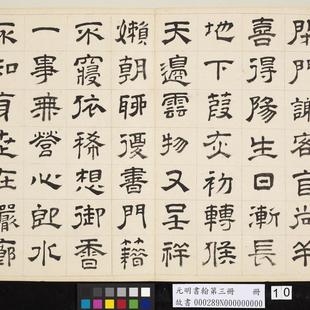 閉門謝客尚羊
喜得陽生日漸長
地下葭灰初轉候
天邊雲物又呈祥
嬾朝聊復書門籍
不寢依稀想御香
一事無營心即水
不知身世在巖廊
元明書翰第三冊 冊
故書 000289N000000000
10